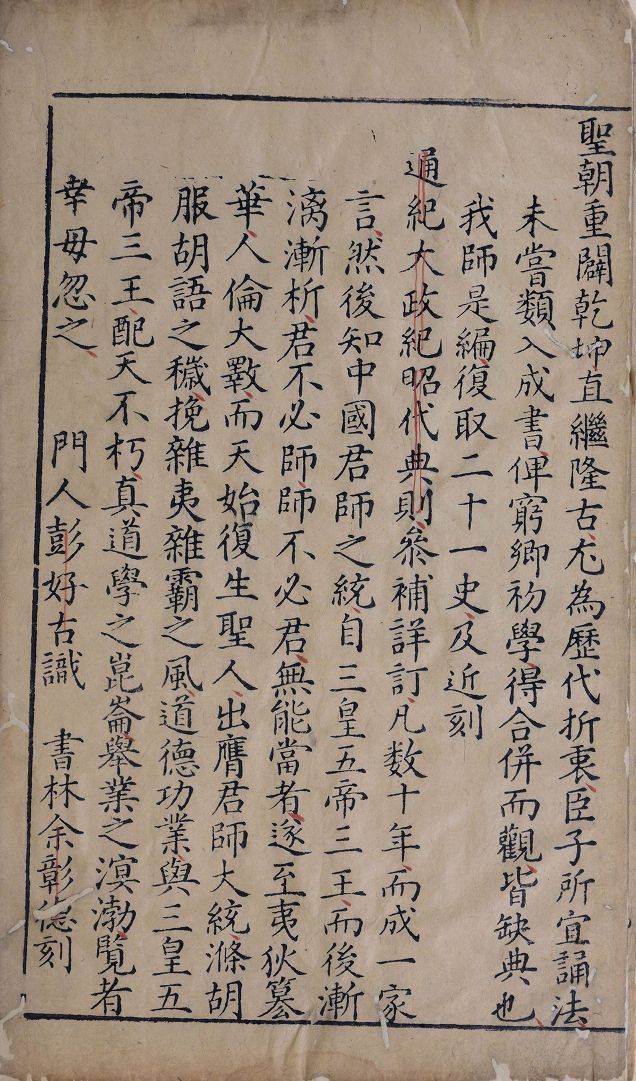 聖朝重闢乾坤直繼隆古尤為歷代折衷臣子所宜誦法
未嘗類入成書俾窮鄉初學得合併而觀皆缺典也
我師是編復取二十一史及近刻
通紀大政紀昭代典則叅補詳訂凡数十年而成一家
言然後知中國君師之統自三皇五帝三王而後漸
漓漸析君不必師師不必君無能當者遂至夷狄簒
華人倫大斁而天始復生聖人出膺君師大統滌胡
服胡語之穢挽雜夷雜霸之風道德功業與三皇五
帝三王配天不朽真道學之崑崙舉業之溟渤覽者
幸毋忽之 門人彭好古識 書林余彰德刻